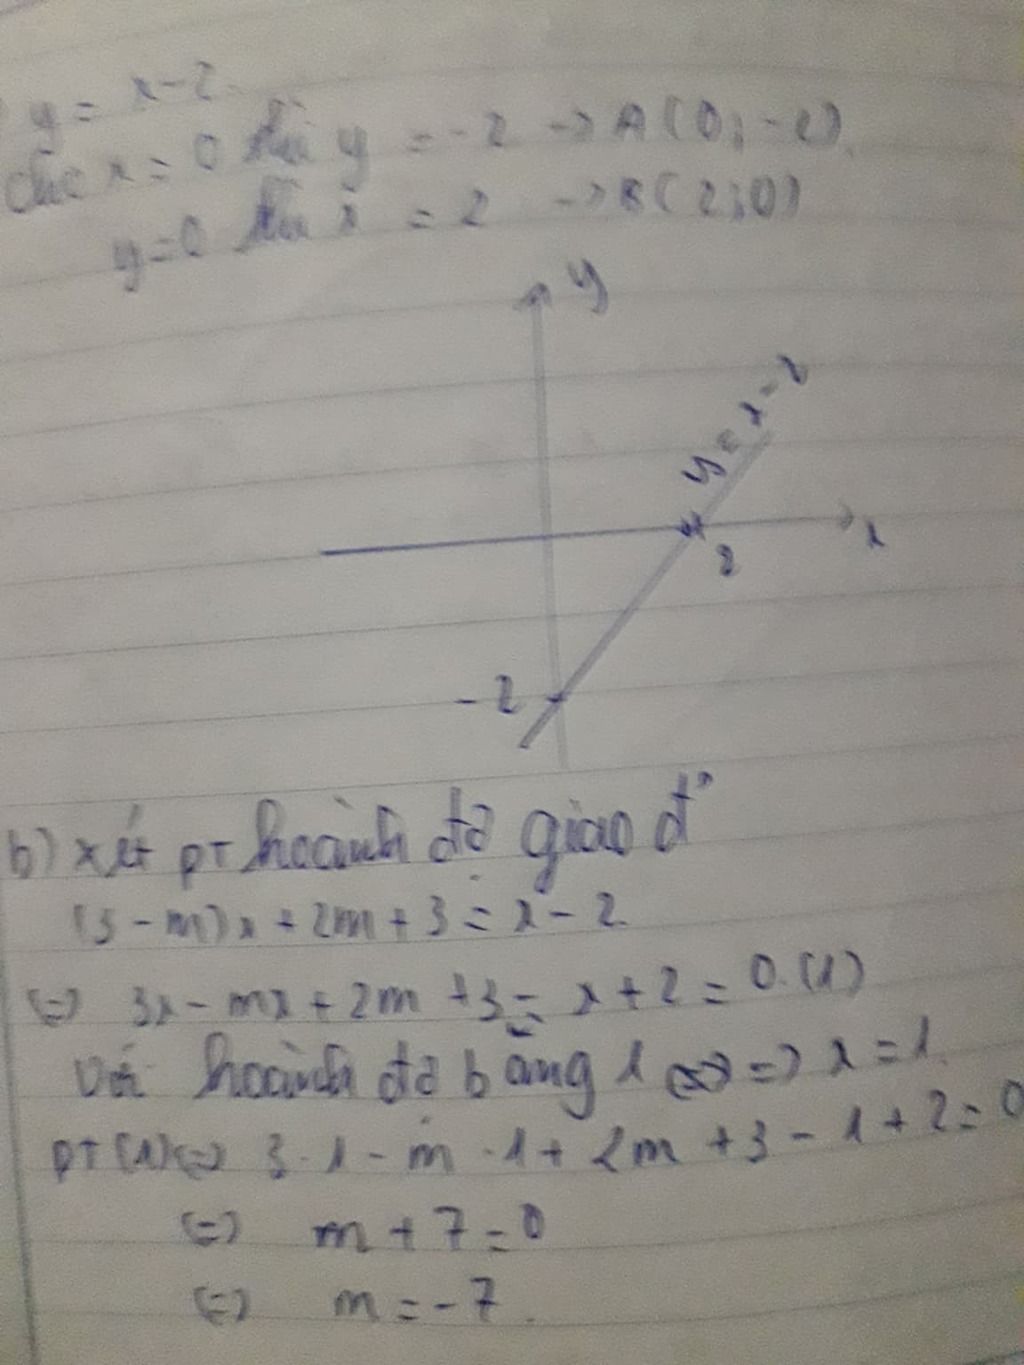 y = x-2
Cho x = 0 thì y = -2 → A(0;-2)
y=0 thì x = 2 → B(2;0)
y
y = x-2
x
2
-2
b) xét pt hoành độ giao đ'
(3-m)x + 2m + 3 = x - 2
(=) 3x - mx + 2m + 3 = x + 2 = 0. (1)
Với hoành độ bằng 1 => x = 1.
PT (1) (=) 3.1 - m.1 + 2m + 3 - 1 + 2 = 0
(=) m + 7 = 0
(=) m = -7.